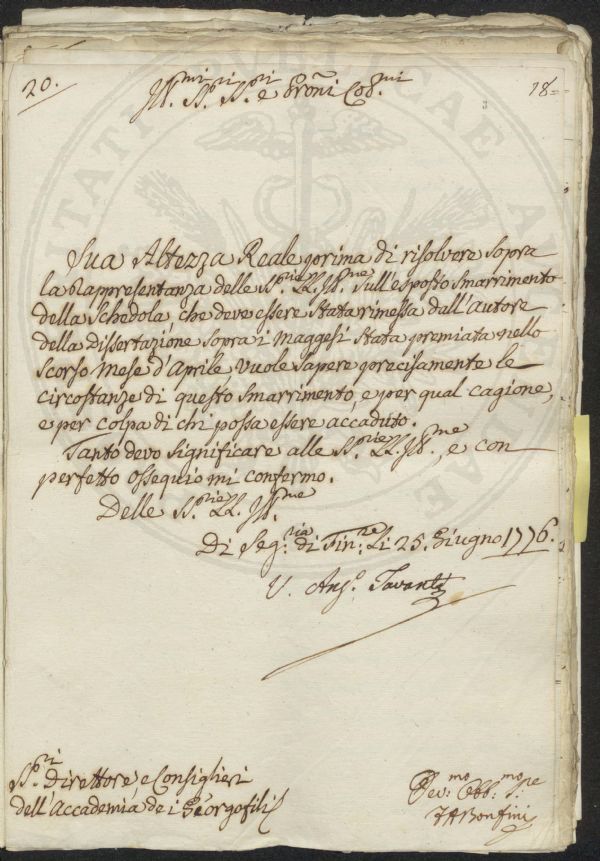 20.
18
Ill.mi SS.ri SS.ri e Pröni Col.mi
Sua Altezza Reale prima di risolvere sopra
la Rappresentanza delle SS.rie LL. Ill.me sull'esposto smarrimento
della Schedola, che deve essere stata rimessa dall'autore
della dissertazione sopra i Maggesi stata premiata nello
scorso Mese d'Aprile, vuole sapere precisamente le
circostanze di questo smarrimento, e per qual cagione,
e per colpa di chi possa essere accaduto.
Tanto devo significare alle SS.rie LL. Ill.me, e con
perfetto ossequio mi confermo.
Delle SS.rie LL. Ill.me
Di Seg.ria di Fin.ze Li 25. Giugno 1776.
V. Ang.o Tavanti
SS.ri Direttore e Consiglieri
dell'Accademia de i Georgofili
Dev.mo Obb.mo S.re
FABonfini